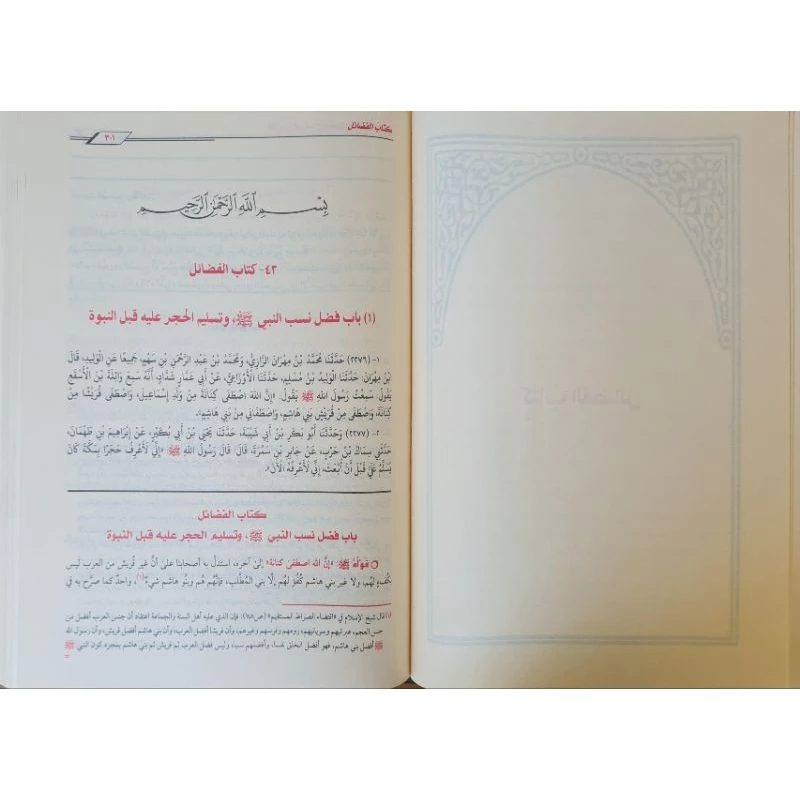 كتاب الفضائل
٣٠١
بِسْمِ اللَّهِ الرَّحْمَٰنِ الرَّحِيمِ
٤٣- كتاب الفضائل
(١) باب فضل نسب النبي ﷺ، وتسليم الحجر عليه قبل النبوة
١- (٢٢٧٦) حَدَّثَنَا مُحَمَّدُ بْنُ مِهْرَانَ الرَّازِيُّ، وَمُحَمَّدُ بْنُ عَبْدِ الرَّحْمَنِ بْنِ سَهْمٍ، جَمِيعًا عَنِ الْوَلِيدِ، قَالَ
بْنُ مِهْرَانَ: حَدَّثَنَا الْوَلِيدُ بْنُ مُسْلِمٍ، حَدَّثَنَا الْأَوْزَاعِيُّ، عَنْ أَبِي عَمَّارٍ شَدَّادٍ، أَنَّهُ سَمِعَ وَاثِلَةَ بْنَ الْأَسْقَعِ
يَقُولُ: سَمِعْتُ رَسُولَ اللهِ ﷺ يَقُولُ: «إِنَّ اللهَ اصْطَفَى كِنَانَةَ مِنْ وَلَدِ إِسْمَاعِيلَ، وَاصْطَفَى قُرَيْشًا مِنْ
كِنَانَةَ، وَاصْطَفَى مِنْ قُرَيْشٍ بَنِي هَاشِمٍ، وَاصْطَفَانِي مِنْ بَنِي هَاشِمٍ».
٢- (٢٢٧٧) وَحَدَّثَنَا أَبُو بَكْرِ بْنُ أَبِي شَيْبَةَ، حَدَّثَنَا يَحْيَى بْنُ أَبِي بُكَيْرٍ، عَنْ إِبْرَاهِيمَ بْنِ طَهْمَانَ،
حَدَّثَنِي سِمَاكُ بْنُ حَرْبٍ، عَنْ جَابِرِ بْنِ سَمُرَةَ، قَالَ: قَالَ رَسُولُ اللهِ ﷺ: «إِنِّي لَأَعْرِفُ حَجَرًا بِمَكَّةَ كَانَ
يُسَلِّمُ عَلَيَّ قَبْلَ أَنْ أُبْعَثَ، إِنِّي لَأَعْرِفُهُ الْآنَ».
كتاب الفضائل
باب فضل نسب النبي ﷺ، وتسليم الحجر عليه قبل النبوة
قَوْلُهُ ﷺ: «إِنَّ الله اصطفى كنانة» إلى آخره، استدل به أصحابنا على أن غير قريش من العرب ليس
بكفء لهم، ولا غير بني هاشم كفؤ لهم إلا بني المطلب، فإنهم هم وبنو هاشم شيءٌ(١) واحد كما صرَّح به في
(١) قال شيخ الإسلام في «اقتضاء الصراط المستقيم» : فإن الذي عليه أهل السنة والجماعة اعتقاد أن جنس العرب أفضل من
جنس العجم، عبرانيهم وسريانيهم، رومهم وفرسهم وغيرهم، وأن قريشًا أفضل العرب، وأن بني هاشم أفضل قريش، وأن رسول الله
ﷺ أفضل بني هاشم، فهو أفضل الخلق نفسا، وأفضلهم نسبا، وليس فضل العرب ثم قريش ثم بني هاشم بمجرد كون النبي ﷺ